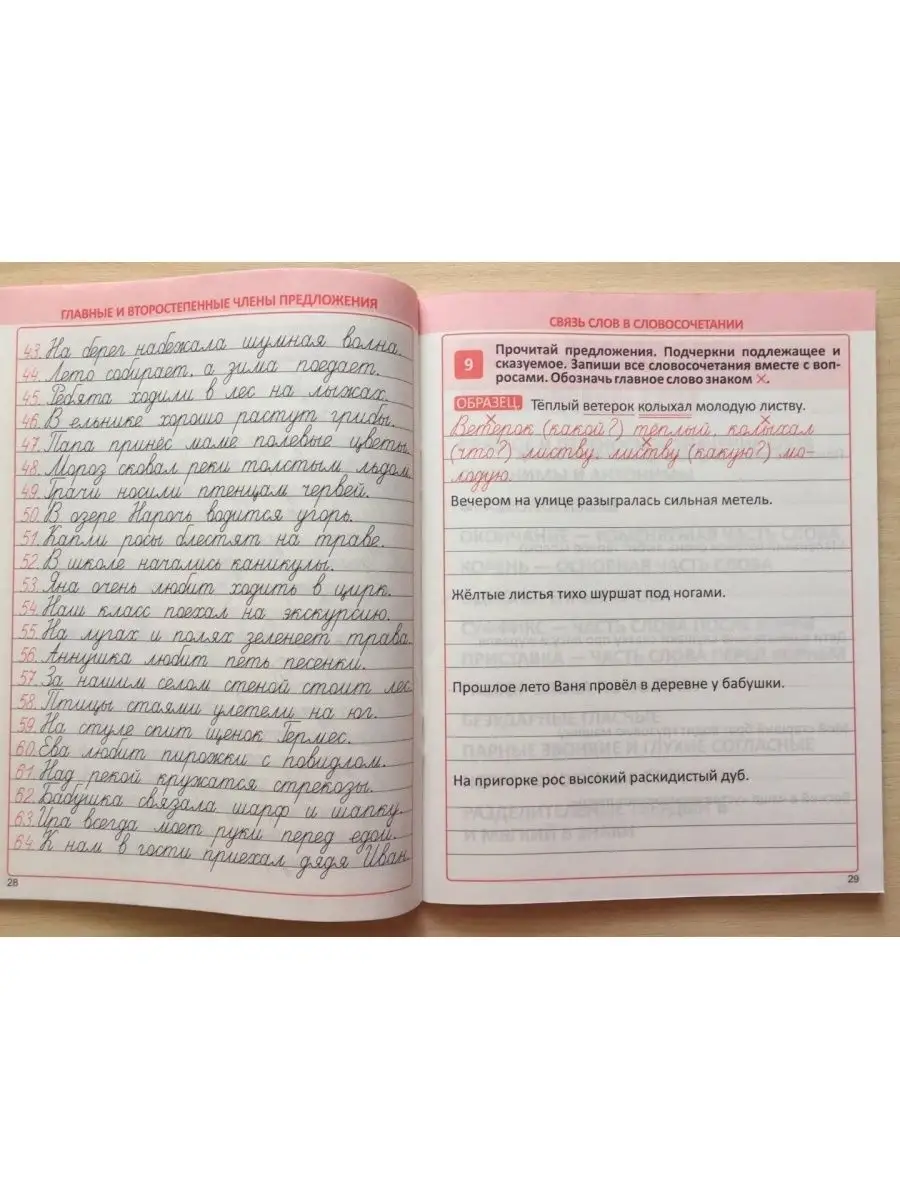 ГЛАВНЫЕ И ВТОРОСТЕПЕННЫЕ ЧЛЕНЫ ПРЕДЛОЖЕНИЯ
43. На берег набежала шумная волна.
44. Лето собирает, а зима поедает.
45. Ребята ходили в лес на лыжах.
46. В ельнике хорошо растут грибы.
47. Папа принёс маме полевые цветы.
48. Мороз сковал реки толстым льдом.
49. Грачи носили птенцам червей.
50. В озере Нарочь водится угорь.
51. Капли росы блестят на траве.
52. В школе начались каникулы.
53. Яна очень любит ходить в цирк.
54. Наш класс поехал на экскурсию.
55. На лугах и полях зеленеет трава.
56. Аннушка любит петь песенки.
57. За нашим селом стеной стоит лес.
58. Птицы стаями улетели на юг.
59. На стуле спит щенок Гермес.
60. Ева любит пирожки с повидлом.
61. Над рекой кружатся стрекозы.
62. Бабушка связала шарф и шапку.
63. Ира всегда моет руки перед едой.
64. К нам в гости приехал дядя Иван.
28
СВЯЗЬ СЛОВ В СЛОВОСОЧЕТАНИИ
9 Прочитай предложения. Подчеркни подлежащее и
сказуемое. Запиши все словосочетания вместе с воп-
росами. Обозначь главное слово знаком ×.
ОБРАЗЕЦ. Тёплый ветерок колыхал молодую листву.
Ветерок (какой?) тёплый, колыхал
(что?) листву, листву (какую?) мо-
лодую.
Вечером на улице разыгралась сильная метель.
Жёлтые листья тихо шуршат под ногами.
Прошлое лето Ваня провёл в деревне у бабушки.
На пригорке рос высокий раскидистый дуб.
29